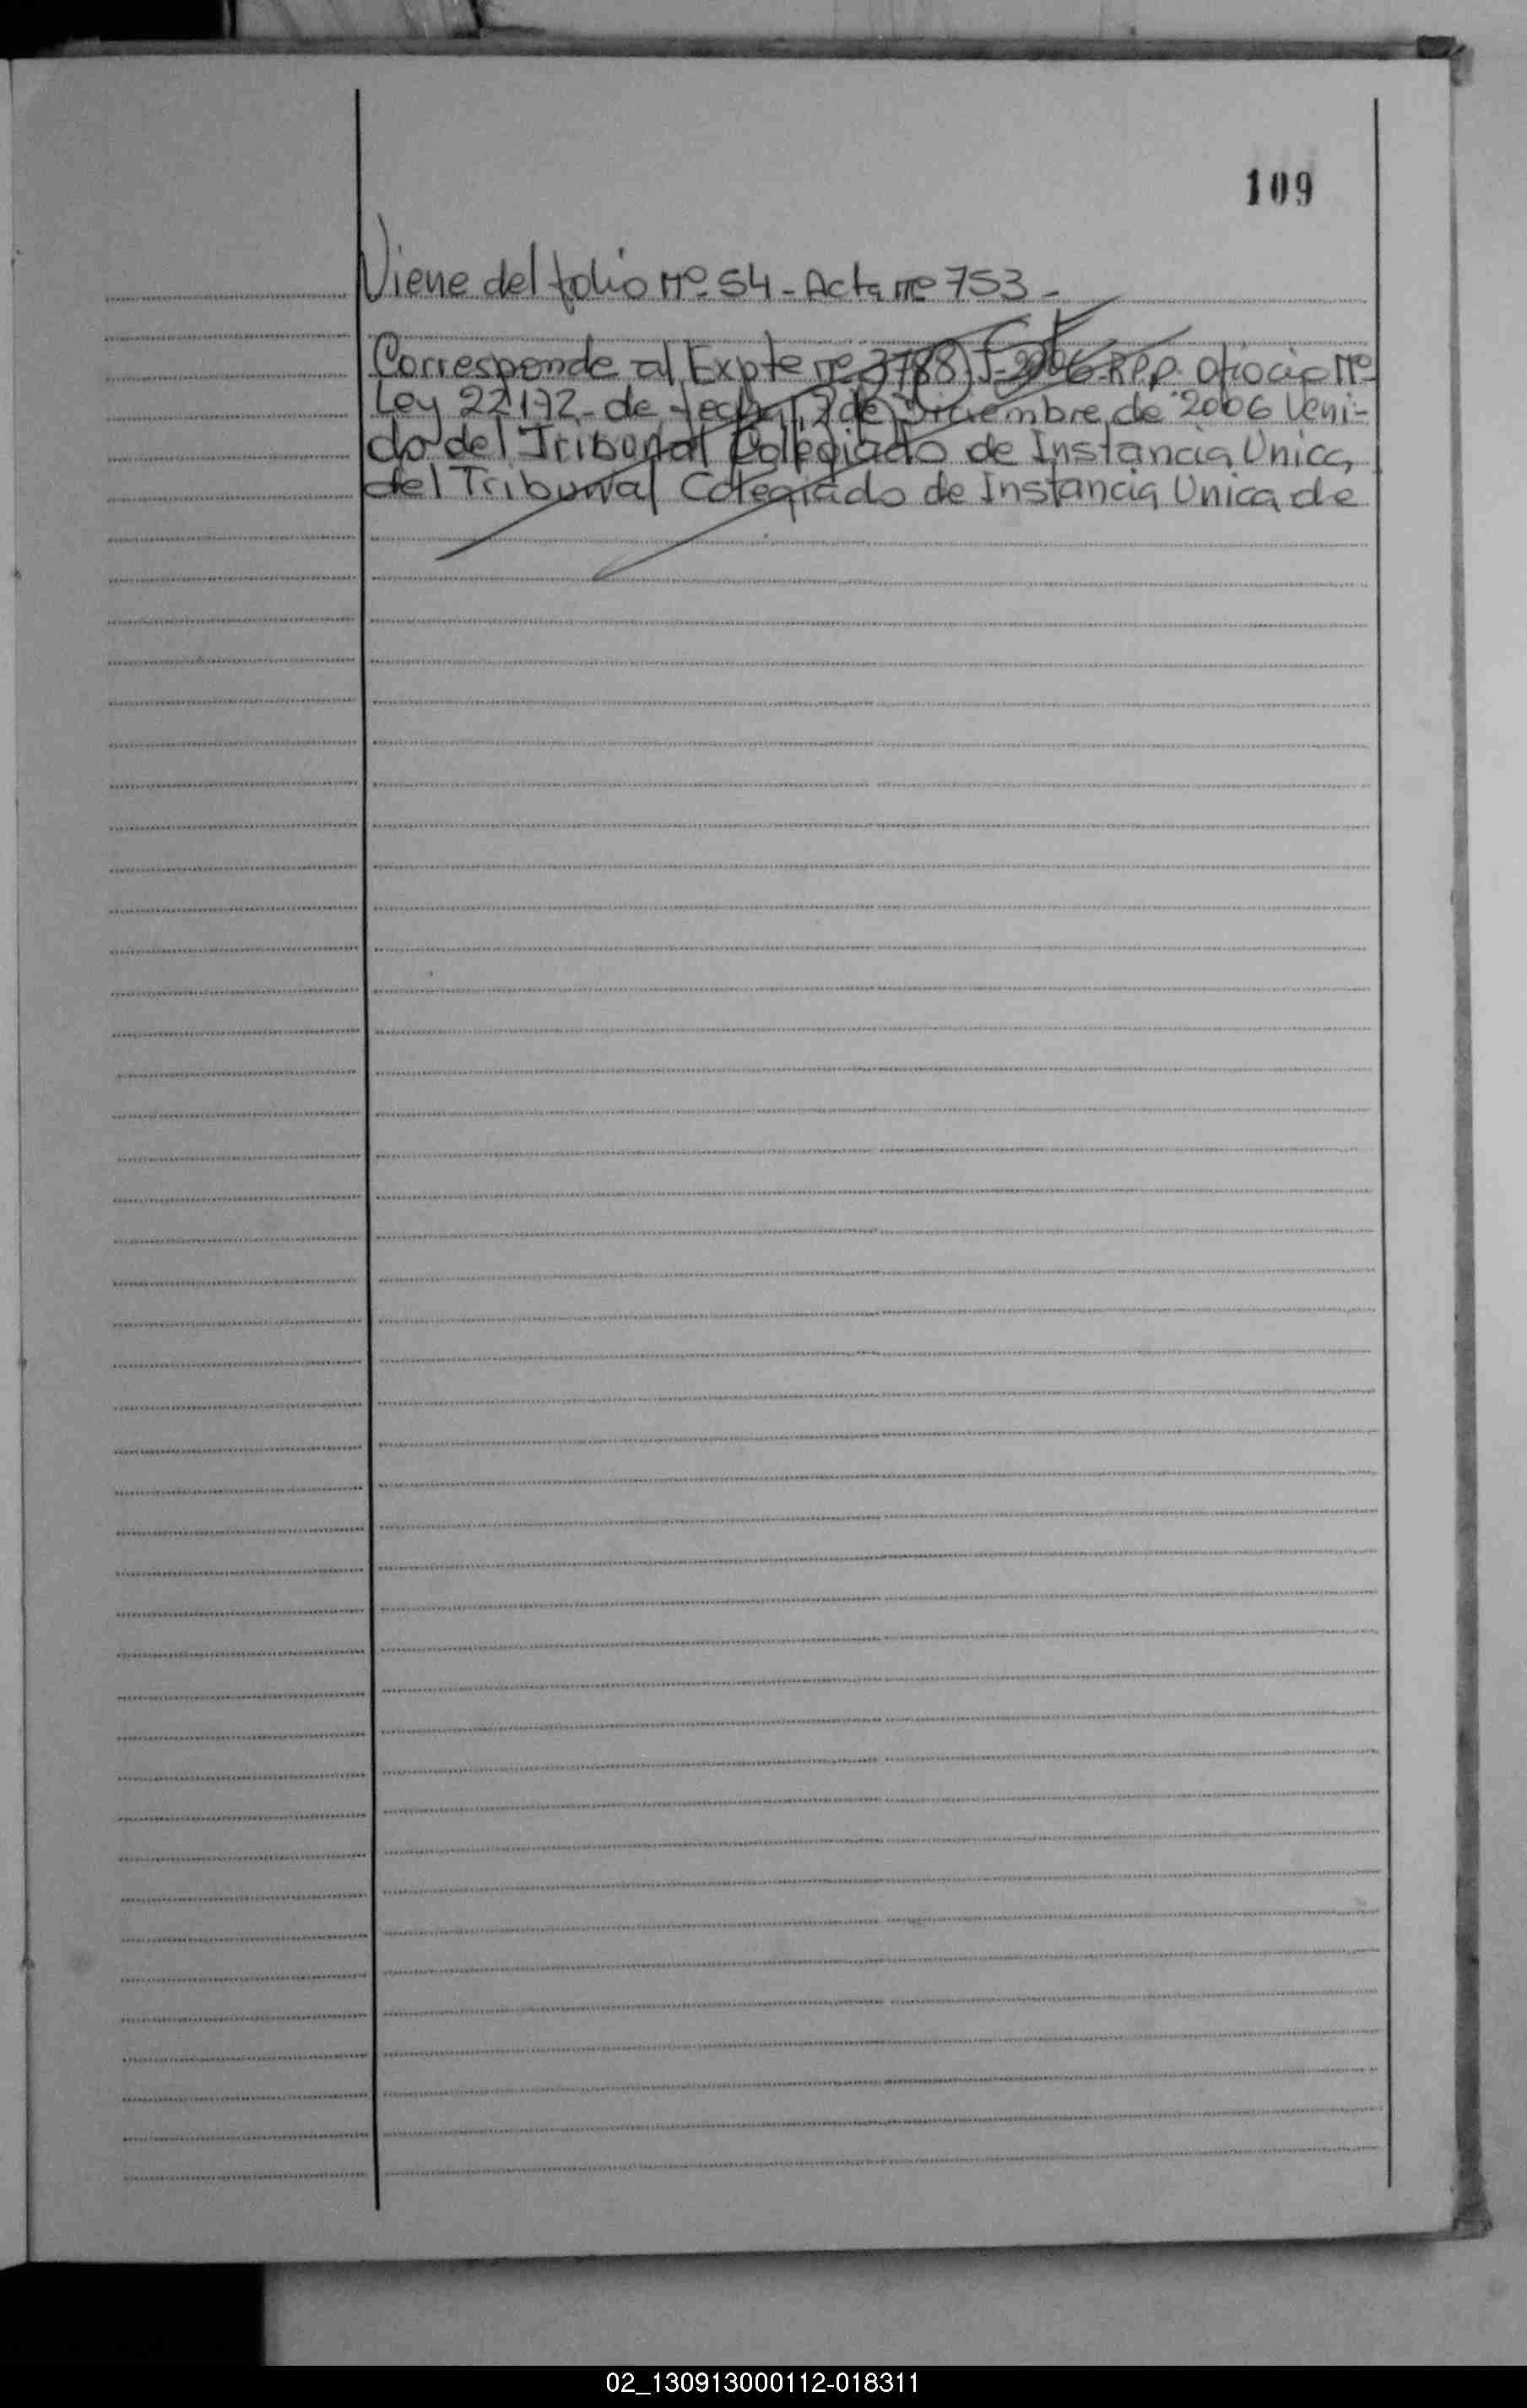 109
Viene del folio Nº 54 - Acta nº 753 -
Corresponde al Expte nº 3788 J-2006-RPP. Ofiocio Nº
Ley 22172 - de fecha de Diciembre de 2006 Veni-
do del Tribunal Colegiado de Instancia Unica,
del Tribunal Colegiado de Instancia Unica de
02_130913000112-018311